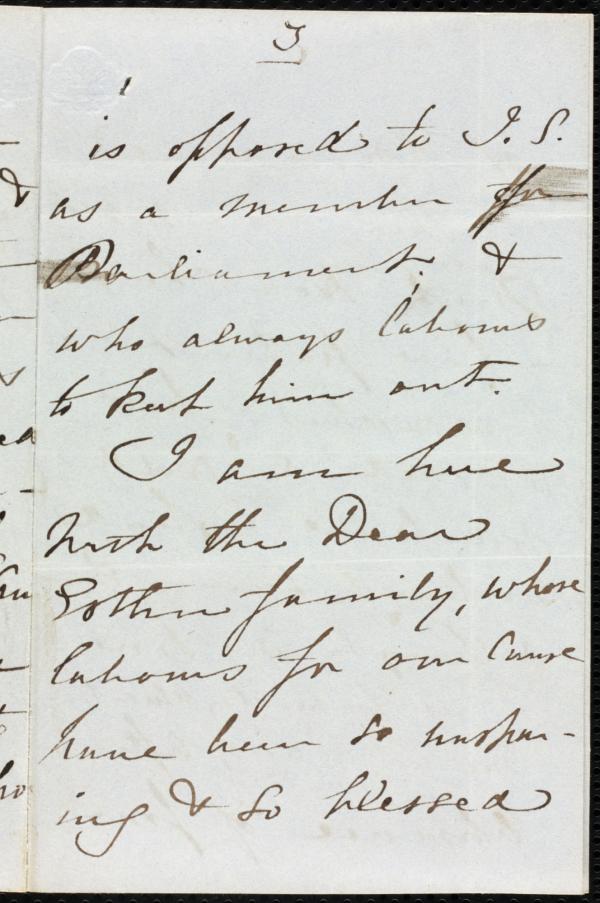 3
is opposed to J. S.
as a member for
Parliament, &
who always labours
to keep him out.
I am here
with the Dear
Estlin family, whose
labours for our Cause
have been so unspar-
ing & so blessed